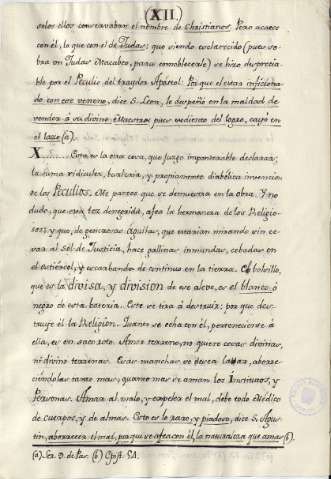 (XII.)
solos ellos conservavan el nombre de Christianos. Pero acaece
con él, lo que con el de Judas; que siendo esclarecido (pues so-
bra un Judas Macabeo, para ennoblecerle) se hizo desprecia-
ble por el Peculio del traydor Apóstol. Porque el cicas inficiona-
do con este veneno, dice S. Leon, le despeñó en la maldad de
vender á su divino Maestro; pues sediento del logro, cayó en
el lazo (a).
X. Esta es la otra cosa, que juzgo importante declarar;
la suma ridicula, bastarda, y propiamente diabólica invencion
de los Peculios. Me parece que se demuestra en la obra. Y no
dudo, que esta tez denegrida, afea la hermosura de los Religio-
sos; y que, de generosas Aguilas, que estarian mirando sin ce-
sar al sol de Justicia, hace gallinas inmundas, cebadas en
el estiércol, y escarbando de continuo en la tierra. El bolsillo,
que es la divisa, y division de ese aleve, es el blanco ó
negro de esta batería. Este se tira á destruir: por que des-
truye él la Religion. Quanes se echa con él, perteneciente á
ella, es un sacro voto. Amo terreno, no quiere cosas divinas,
ni divino terrenas. Estas manchas se desea labar, aborre-
ciéndolas tanto mas, quanto mas se aman los Institutos, y
Personas. Amar al malo, y expeler el mal, debe todo Médico
de cuerpos, y de almas. Esto es lo raro, y piadoso, dice S. Agus-
tin, aborrecer el mal, porque se afea con él, la naturaleza que amas (b).
(a) Ser. 9. de Pas. (b) Epist. 54.